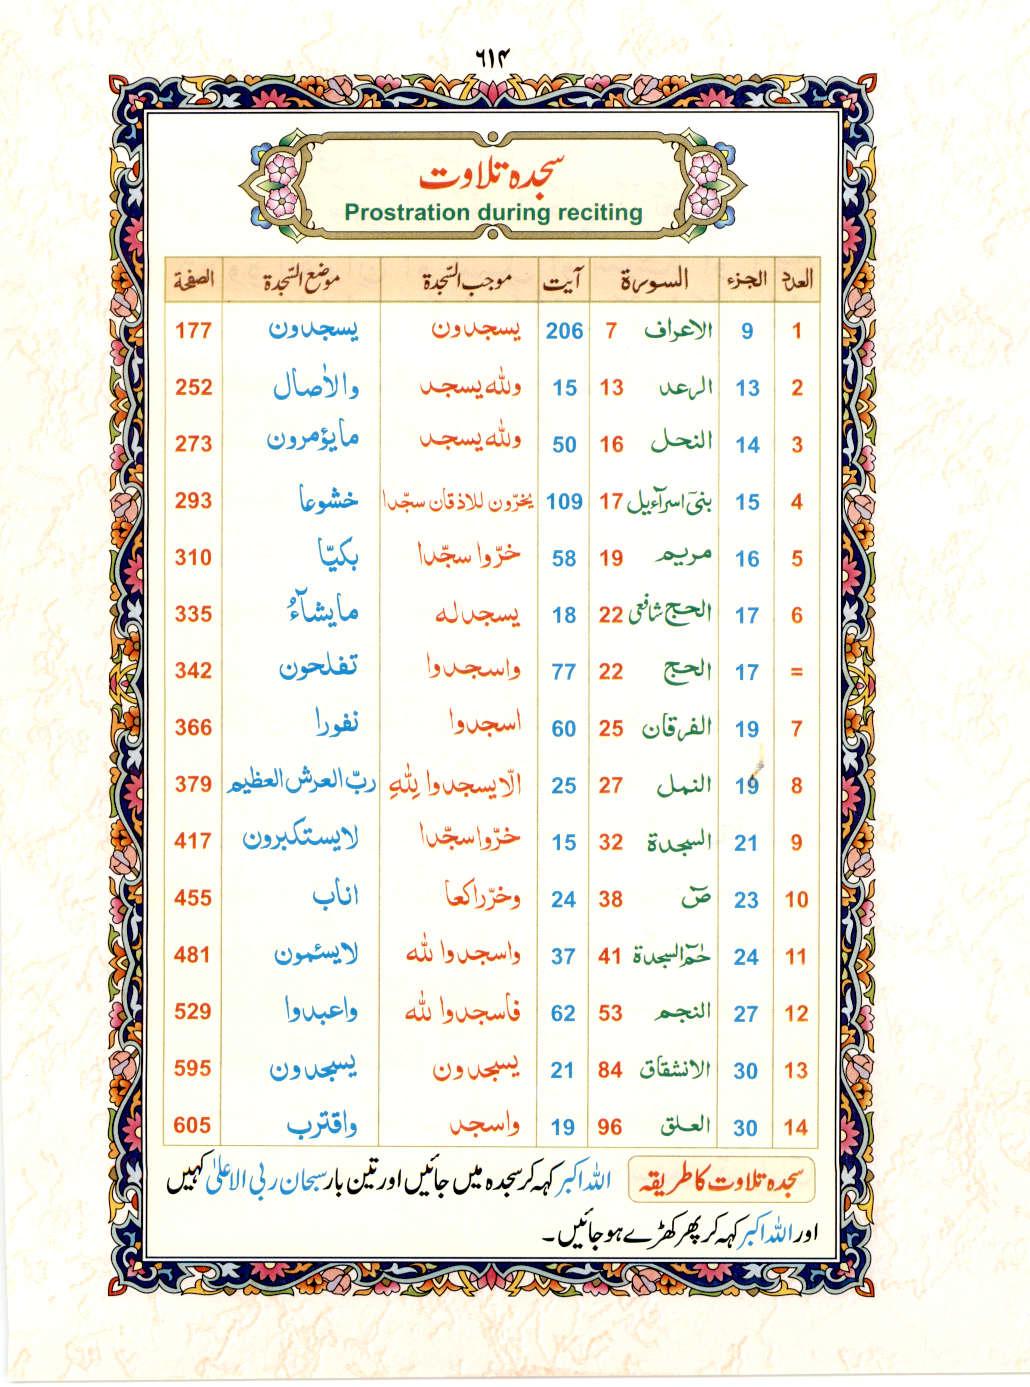 ٦١٤
سجدہ تلاوت
Prostration during reciting
العدد الجزء السورة آیت موجب السّجدة موضع السّجدة الصفحة
1 9 الاعراف 7 206 یسجدون یسجدون 177
2 13 الرعد 13 15 وللّٰه یسجد والاٰصال 252
3 14 النحل 16 50 وللّٰه یسجد مایؤمرون 273
4 15 بنیٓ اسرآءیل 17 109 یخرّون للاذقان سجّدا خشوعا 293
5 16 مریم 19 58 خرّوا سجّدا بکیّا 310
6 17 الحج شافعی 22 18 یسجد له مایشآءُ 335
= 17 الحج 22 77 واسجدوا تفلحون 342
7 19 الفرقان 25 60 اسجدوا نفورا 366
8 19 النمل 27 25 الّا یسجدوا لِلّٰهِ ربّ العرش العظیم 379
9 21 السجدة 32 15 خرّوا سجّدا لایستکبرون 417
10 23 صٓ 38 24 وخرّ راکعا اناب 455
11 24 حٰمٓ السجدة 41 37 واسجدوا للّٰه لایسئمون 481
12 27 النجم 53 62 فاسجدوا للّٰه واعبدوا 529
13 30 الانشقاق 84 21 یسجدون یسجدون 595
14 30 العلق 96 19 واسجد واقترب 605
سجدہ تلاوت کا طریقہ اللہ اکبر کہہ کر سجدہ میں جائیں اور تین بار سبحان ربی الاعلیٰ کہیں
اور اللہ اکبر کہہ کر پھر کھڑے ہو جائیں۔